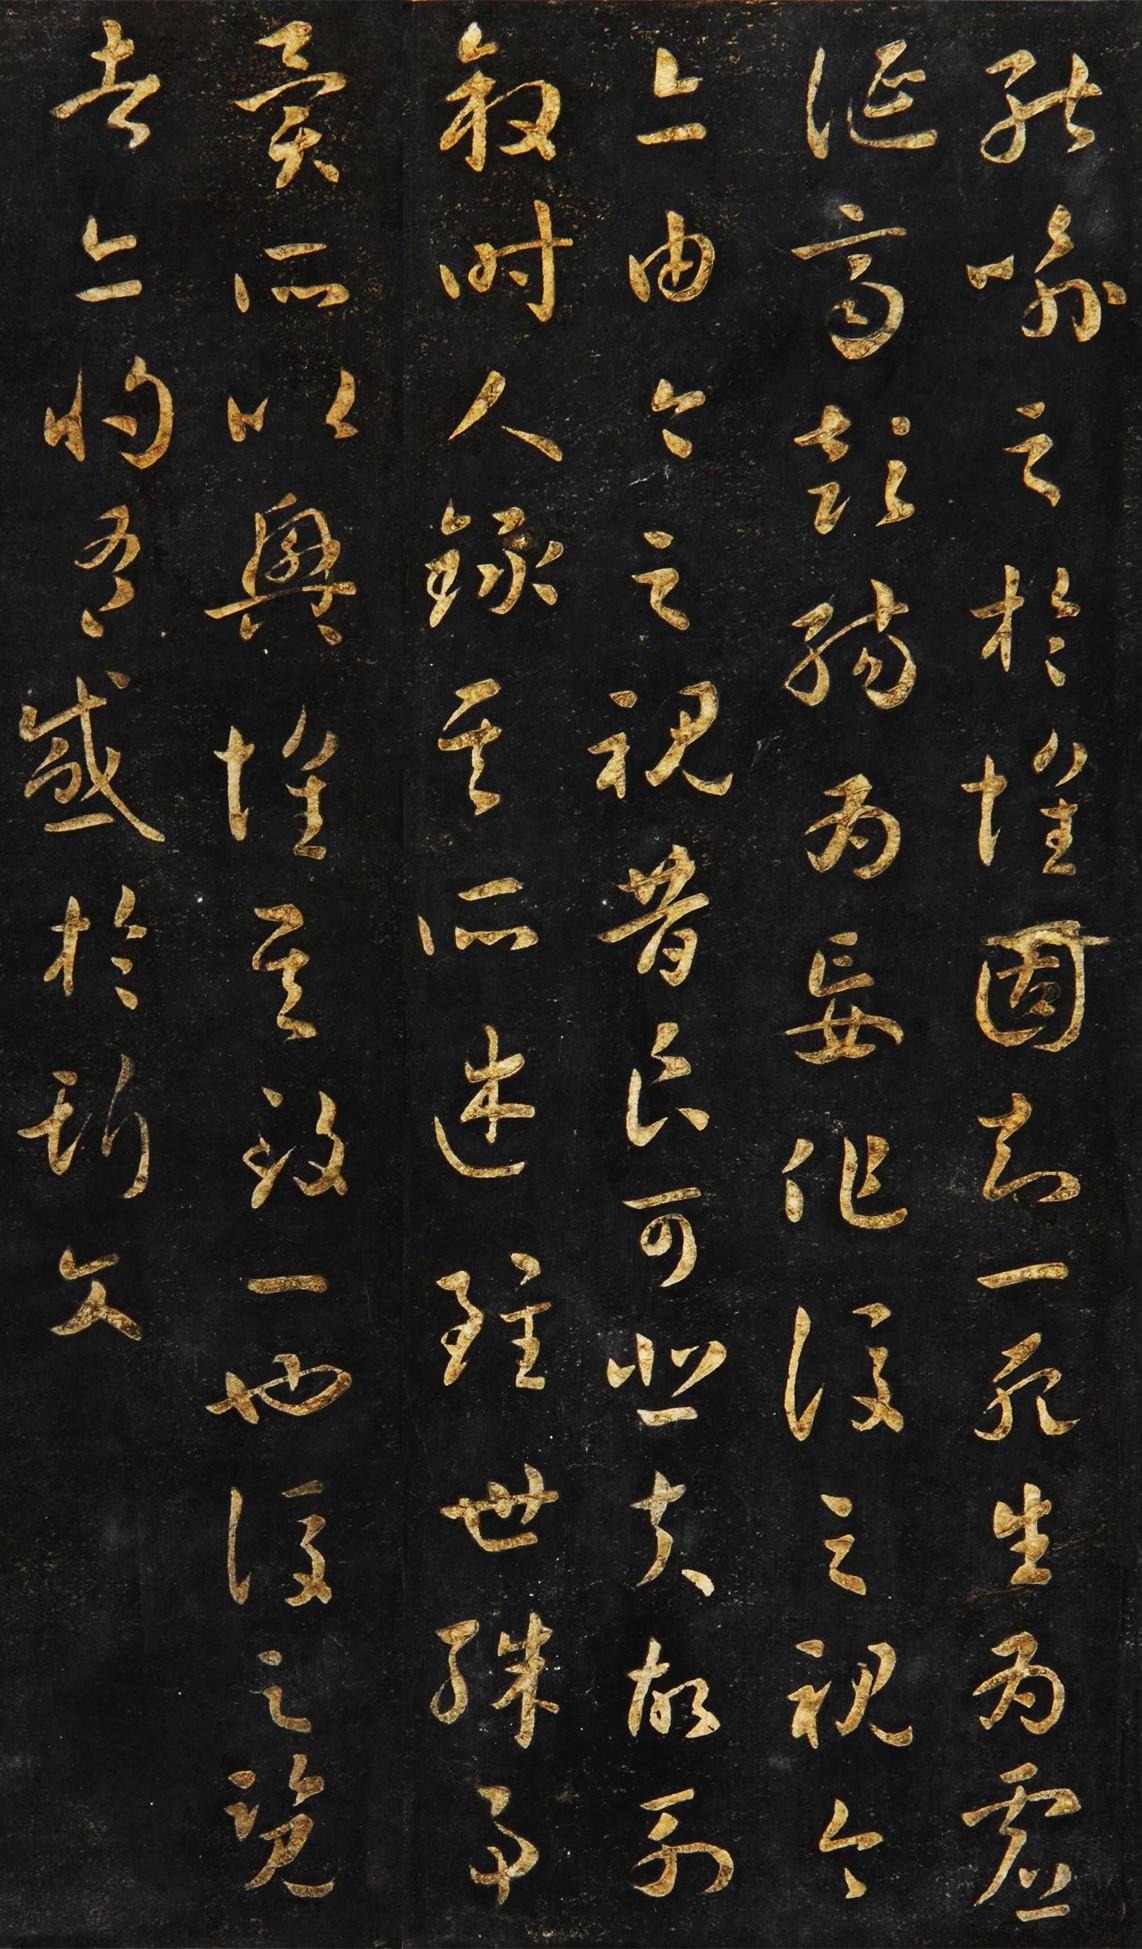 能喻之於懷固知一死生為虛
誕齊彭殤為妄作後之視今
亦由今之視昔良可悲夫故列
敘時人錄其所述雖世殊事
異所以興懷其致一也後之覽
者亦將有感於斯文